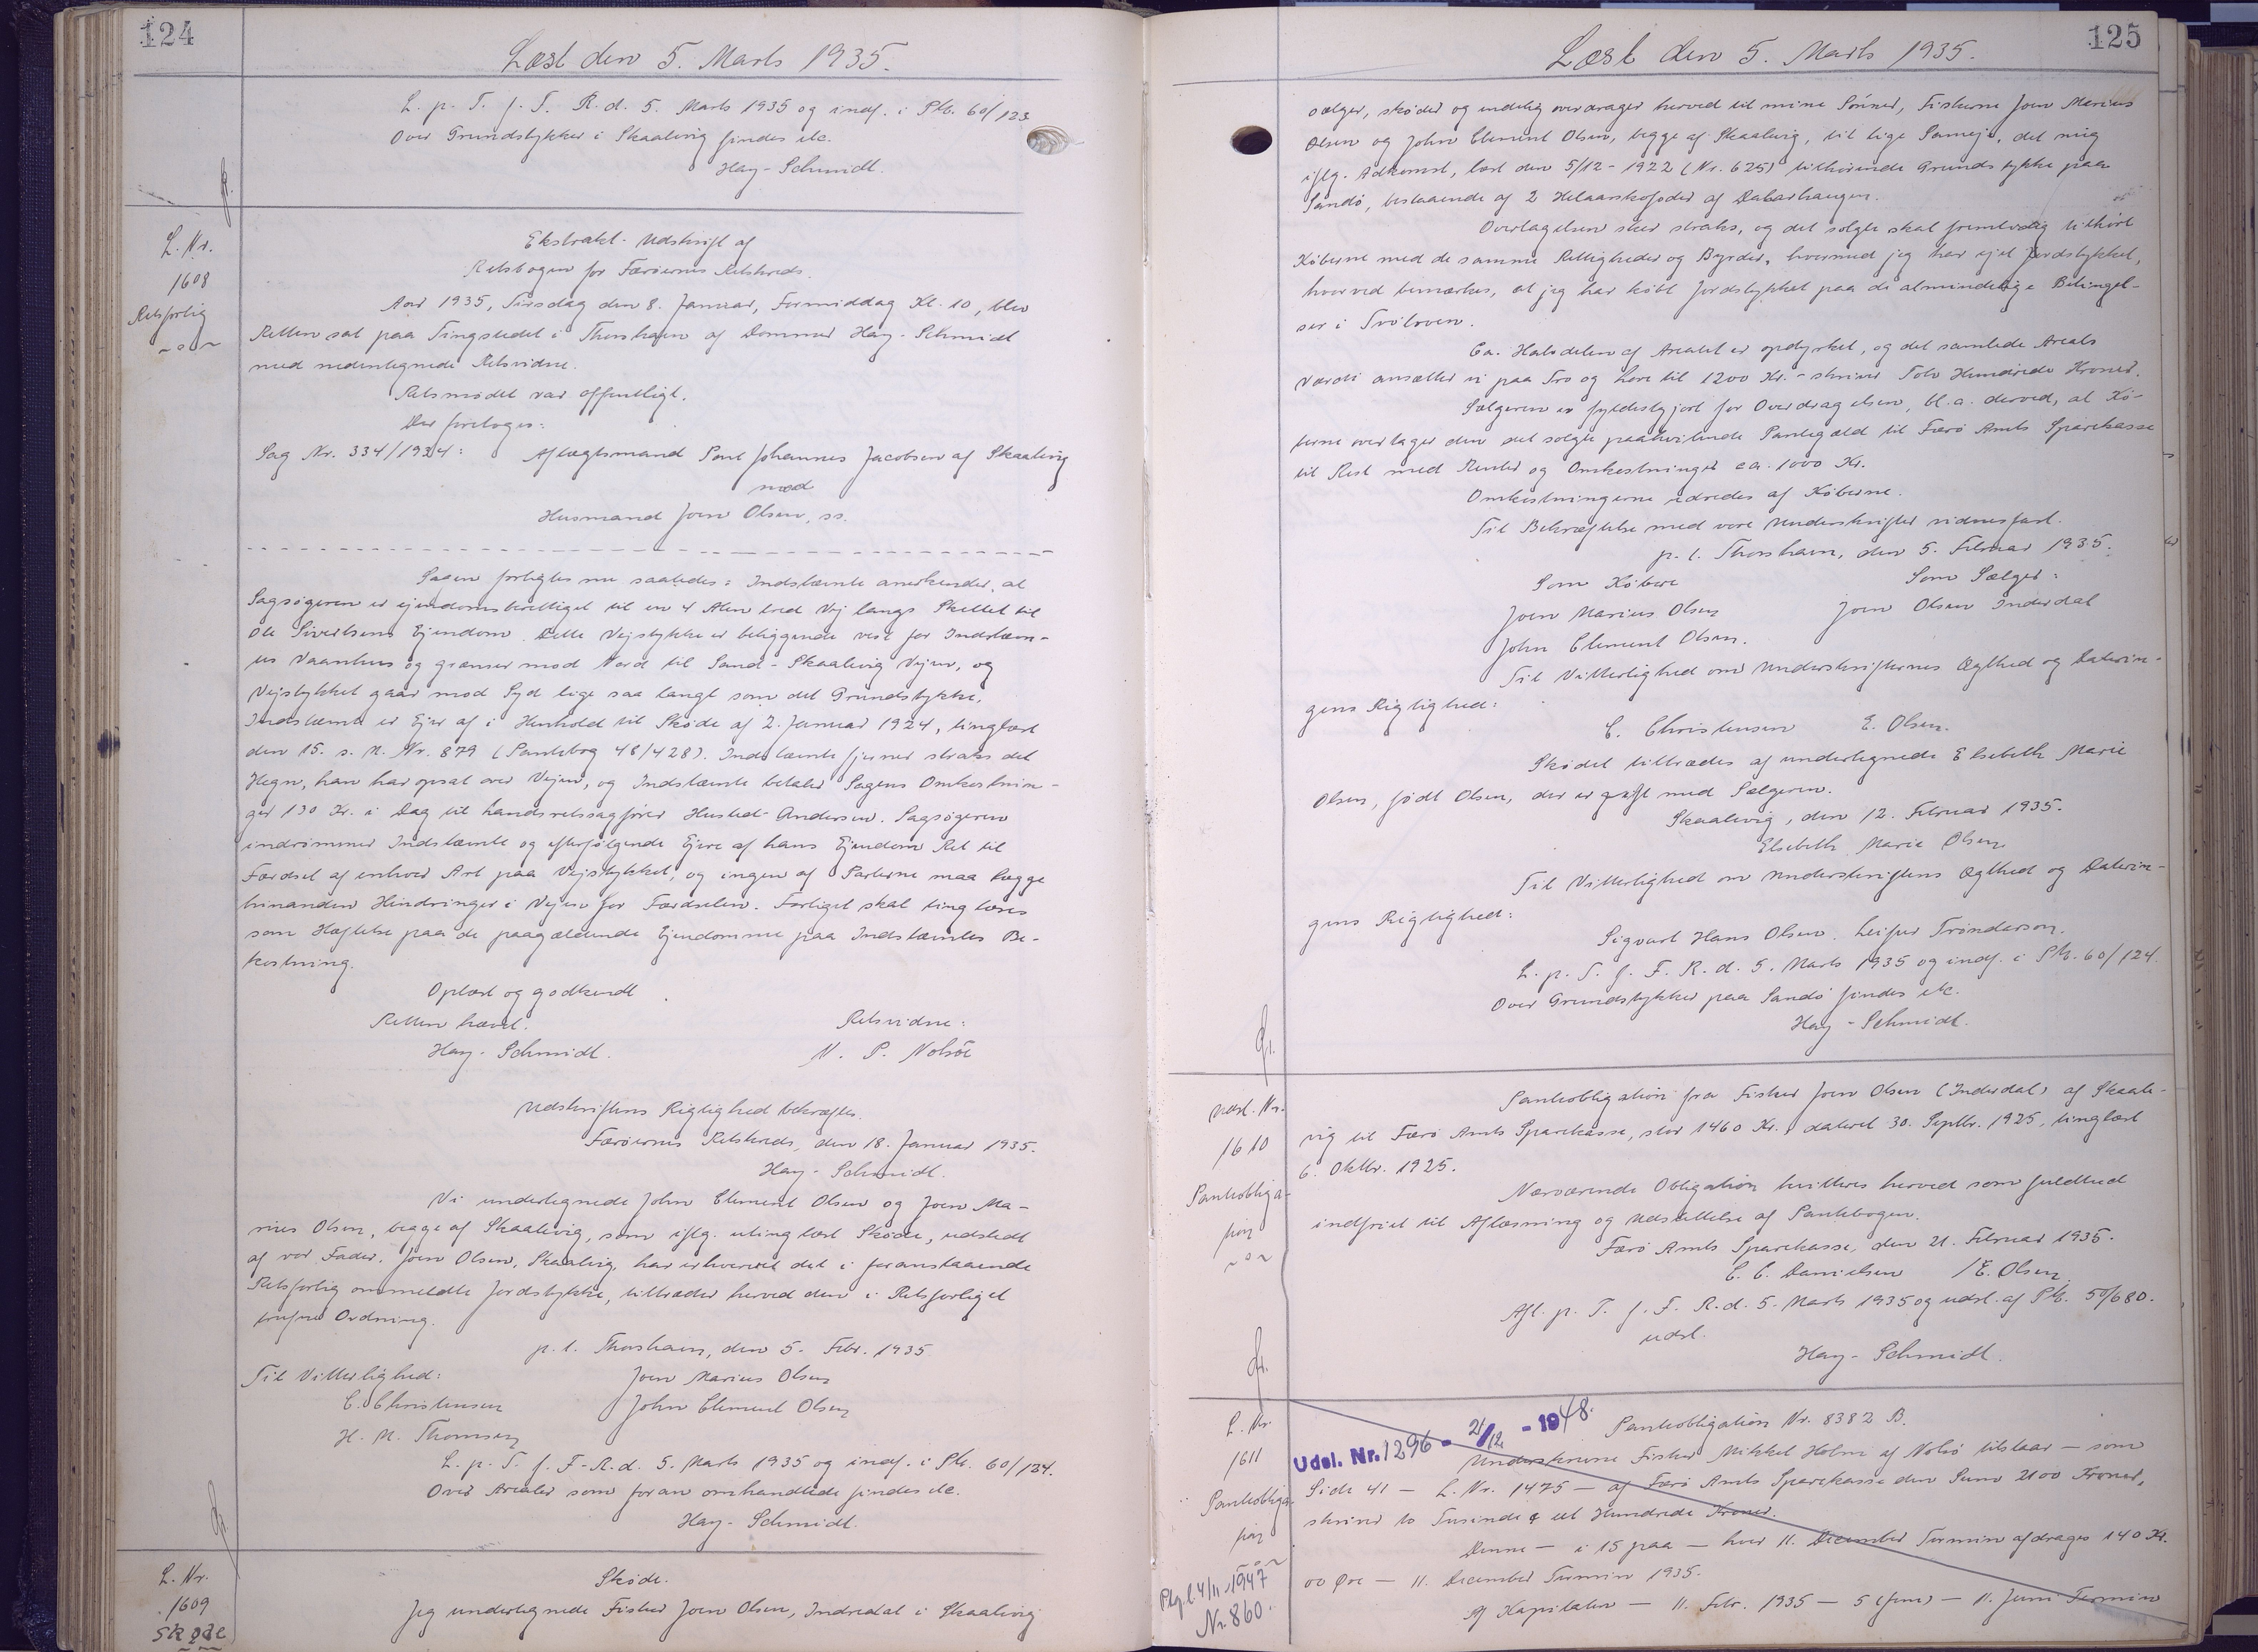 124
Læst den 5. Marts 1935.
L. p. T. f. F. R. d. 5. Marts 1935 og indf. i Ptb. 60/123
Over Grundstykker i Skaalevig findes etc.
Hay-Schmidt.
L. Nr.
1608
Retsforlig
Ekstrakt-Udskrift af
Retsbogen for Færøernes Retskreds.
Aar 1935, Tirsdag den 8. Januar, Formiddag Kl. 10, blev
Retten sat paa Tingstedet i Thorshavn af Dommer Hay-Schmidt
med nedentegnede Retsvidne.
Retsmødet var offentligt.
Der foretoges:
Sag Nr. 334/1934: Aftægtsmand Poul Johannes Jacobsen af Skaalevig
mod
Husmand Joen Olsen, ss.
Sagen forligtes nu saaledes: Indstævnte anerkender, at
Sagsøgeren er ejendomsberettiget til en 4 Alen bred Vej langs Skellet til
Ole Sivertsens Ejendom. Dette Vejstykke er beliggende vest for Indstævn-
tes Vaanhus og grænser mod Nord til Sand-Skaalevig Vejen, og
Vejstykket gaar mod Syd lige saa langt som det Grundstykke,
Indstævnte er Ejer af i Henhold til Skøde af 2. Januar 1924, tinglæst
den 15. s. M. Nr. 879 (Pantebog 48/428). Indstævnte fjerner straks det
Hegn, han har opsat over Vejen, og Indstævnte betaler Sagens Omkostnin-
ger 130 Kr. i Dag til Landsretssagfører Husted-Andersen. Sagsøgeren
indrømmer Indstævnte og efterfølgende Ejere af hans Ejendom Ret til
Færdsel af enhver Art paa Vejstykket, og ingen af Parterne maa lægge
hinanden Hindringer i Vejen for Færdselen. Forliget skal tinglæses
som Hæftelse paa de paagældende Ejendomme paa Indstævntes Be-
kostning.
Oplæst og godkendt.
Retten hævet. Retsvidne:
Hay-Schmidt. N. P. Nolsöe
Udskriftens Rigtighed bekræftes.
Færøernes Retskreds, den 18. Januar 1935.
Hay-Schmidt.
Vi undertegnede John Clement Olsen og Joen Ma-
rius Olsen, begge af Skaalevig, som iflg. utinglæst Skøde, udstedt
af vor Fader, Joen Olsen, Skaalevig, har erhvervet det i foranstaaende
Retsforlig ommeldte Jordstykke, tiltræder herved den i Retsforliget
trufne Ordning.
p. t. Thorshavn, den 5. Febr. 1935
Til Vitterlighed: Joen Marius Olsen
C. Christensen John Clement Olsen
H. N. Thomsen
L. p. T. f. F. R. d. 5. Marts 1935 og indf. i Ptb. 60/124.
Over Arealer som foran omhandlede findes etc.
Hay-Schmidt.
L. Nr.
1609
Skøde
Skøde.
Jeg undertegnede Fisker Joen Olsen, Inderdal i Skaalevig
125
Læst den 5. Marts 1935.
sælger, skøder og endelig overdrager herved til mine Sönner, Fiskerne Joen Marius
Olsen og John Clement Olsen, begge af Skaalevig, til lige Sameje, det mig
iflg. Adkomst, læst den 5/12-1922 (Nr. 625) tilhørende Grundstykke paa
Sandö, bestaaende af 2 Helaarskofoder af Dalarhaugen.
Overtagelsen sker straks, og det solgte skal fremtidig tilhøre
Köberne med de samme Rettigheder og Byrder, hvormed jeg har ejet Jordstykket,
hvorved bemærkes, at jeg har købt Jordstykket paa de almindelige Betingel-
ser i
Ca. Halvdelen af Arealet er opdyrket, og det samlede Areals
Værdi ansætter vi paa Tro og Love til 1200 Kr. - skriver Tolv Hundrede Kroner.
Sælgeren er fyldestgjort for Overdragelsen, bl. a. derved, at Kö-
berne overtager den det solgte paahvilende Pantegæld til Færö Amts Sparekasse
til Rest med Renter og Omkostninger ca. 1000 Kr.
Omkostningerne udredes af Köberne.
Til Bekræftelse med vore Underskrifter vidnesfast.
p. t. Thorshavn, den 5. Februar 1935.
Som Købere Som Sælger:
Joen Marius Olsen Joen Olsen Inderdal
John Clement Olsen.
Til Vitterlighed om Underskrifternes Ægthed og Daterin-
gens Rigtighed:
C. Christensen E. Olsen.
Skødet tiltrædes af undertegnede Elsebeth Marie
Olsen, født Olsen, der er gift med Sælgeren.
Skaalevig, den 12. Februar 1935.
Elsebeth Marie Olsen
Til Vitterlighed om Underskriftens Ægthed og Daterin-
gens Rigtighed:
Sigvart Hans Olsen. Leifur Tróndarson.
L. p. T. f. F. R. d. 5. Marts 1935 og indf. i Ptb. 60/124.
Over Grundstykker paa Sandö findes etc.
Hay-Schmidt.
Udsl. Nr.
1610
Pantobliga-
tion
Pantobligation fra Fisker Joen Olsen (Inderdal) af Skaale-
vig til Færö Amts Sparekasse, stor 1460 Kr., dateret 30. Septbr. 1925, tinglæst
6. Oktbr. 1925.
Nærværende Obligation kvitteres herved som fuldtud
indfriet til Aflæsning og Udslettelse af Pantebogen.
Færö Amts Sparekasse, den 21. Februar 1935.
C. C. Danielsen /E. Olsen
Afl. p. T. f. F. R. d. 5. Marts 1935 og udsl. af Ptb. 50/680.
udsl.
Hay-Schmidt.
L. Nr.
1611
Pantobliga-
tion
4/11-1947
Nr. 860.
Udsl. Nr. 1296 - 21/12 - 1948.
Pantobligation Nr. 8382 B.
Underskrevne Fisker Mikkel Holm af Nolsö tilstaar — som
Side 41 — L. Nr. 1475 — af Færö Amts Sparekasse den Sum 2100 Kroner,
skriver to Tusinde et Hundrede Kroner.
Denne — i 15 paa — hver 11. December Termin afdrages 140 Kr.
00 Øre — 11. December Termin 1935.
Af Kapitalen — 11. Febr. 1935 — 5 (fem) — 11. Juni Termin